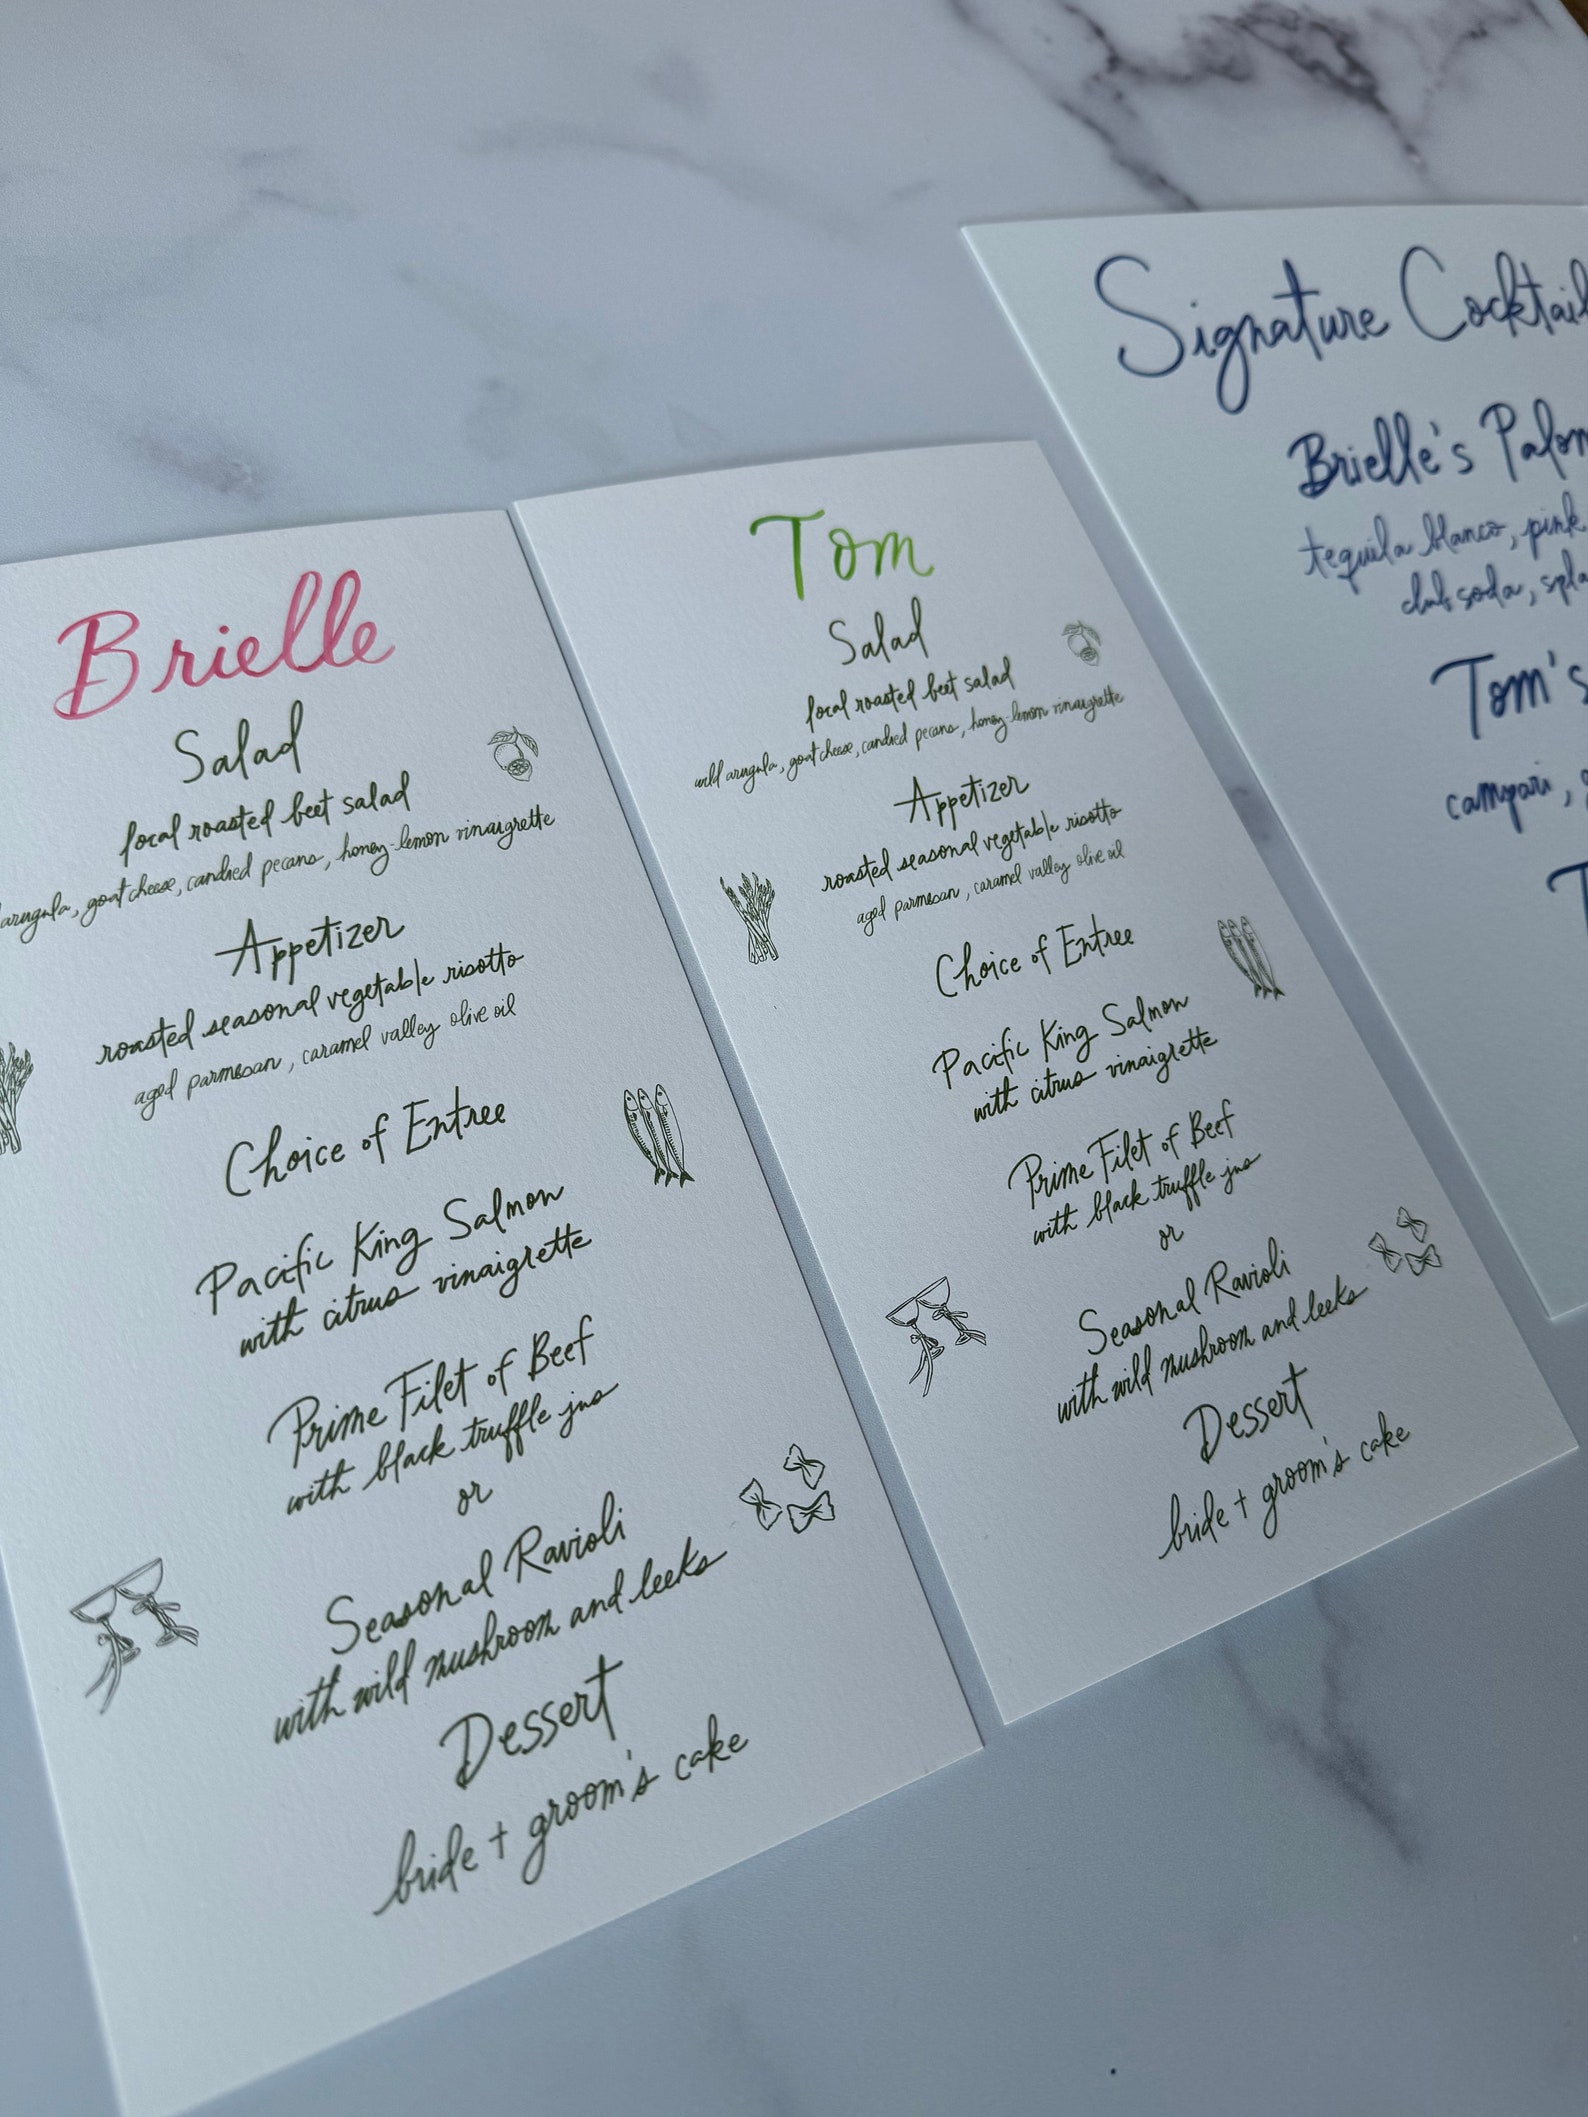 Brielle
Salad
local roasted beet salad
arugula, goat cheese, candied pecans, honey-lemon vinaigrette
Appetizer
roasted seasonal vegetable risotto
aged parmesan, caramel valley olive oil
Choice of Entree
Pacific King Salmon
with citrus vinaigrette
Prime Filet of Beef
with black truffle jus
or
Seasonal Ravioli
with wild mushroom and leeks
Dessert
bride + groom's cake
Tom
Salad
local roasted beet salad
wild arugula, goat cheese, candied pecans, honey-lemon vinaigrette
Appetizer
roasted seasonal vegetable risotto
aged parmesan, caramel valley olive oil
Choice of Entree
Pacific King Salmon
with citrus vinaigrette
Prime Filet of Beef
with black truffle jus
or
Seasonal Ravioli
with wild mushroom and leeks
Dessert
bride + groom's cake
Signature Cocktail
Brielle's
tequila blanco, pink
club soda,
Tom's
campari,